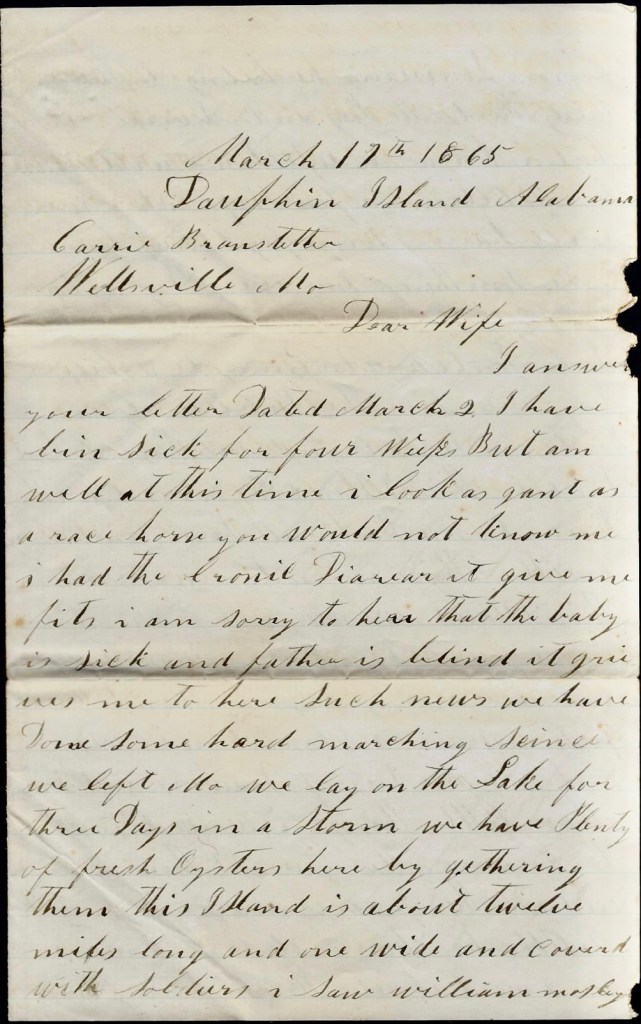 March 17th 1865
Dauphin Island Alabama
Carrie Branstetter
Wellsville Mo
Dear Wife
I answer
your letter Dated March 2 I have
bin sick for four Weeks But am
well at this time i look as gant as
a race horse you would not know me
i had the Cronic Diarear it give me
fits i am sorry to hear that the baby
is sick and father is blind it grie
ves me to here such news we have
Done some hard marching seince
we left Mo we lay on the Lake for
three Days in a storm we have Plenty
of fresh Oysters here by gethering
them this Island is about twelve
miles long and one wide and coverd
with soldiers i saw william mosley